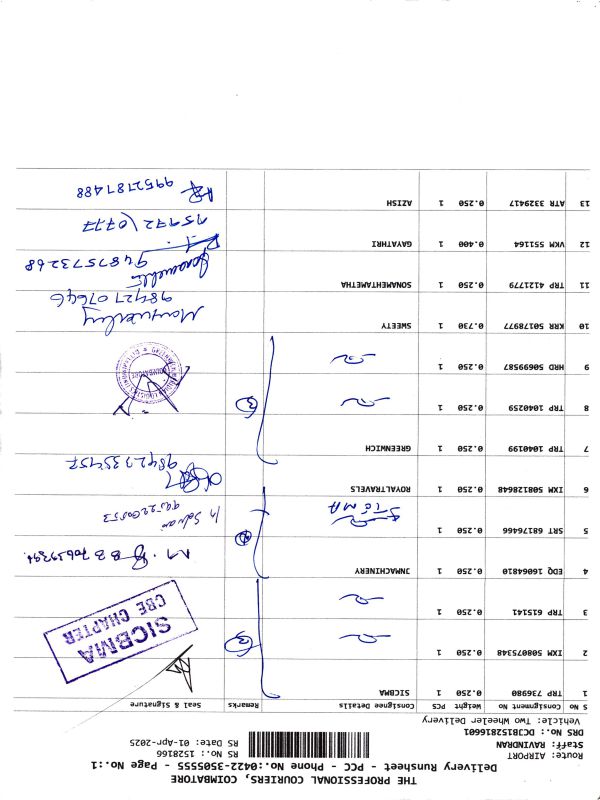 THE PROFESSIONAL COURIERS, COIMBATORE
Delivery Runsheet - PCC - Phone No.:0422-3505555 - Page No.:1
Route: AIRPORT
Staff: RAVINDRAN
DRS No.: DCJB152816601
Vehicle: Two Wheeler Delivery
RS No.: 1528166
RS Date: 01-Apr-2025
S No Consignment No Weight PCS Consignee Details Remarks Seal & Signature
1 TRP 736980 0.250 1 SICBMA
2 IXM 508075348 0.250 1
3 TRP 615141 0.250 1
SICBMA
CBE CHAPTER
4 EDQ 16064810 0.250 1 JNMACHINERY
5 SRT 68176466 0.250 1
6 IXM 508128648 0.250 1 ROYALTRAVELS 98423 35457
7 TRP 1040199 0.250 1 GREENWICH
8 TRP 1040259 0.250 1
9 HRD 50699587 0.250 1
10 KRR 50178977 0.730 1 SWEETY 98427 07646
11 TRP 4121779 0.250 1 SONAMEHTAMETHA 9487573268
12 VKM 551164 0.400 1 GAYATHRI
13 ATR 3329417 0.250 1 AZISH 9952787488